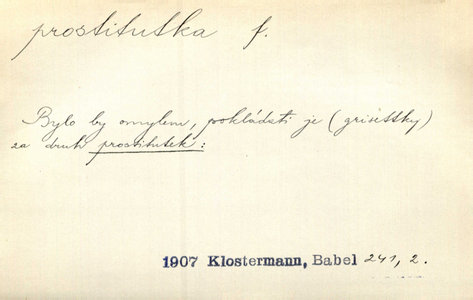 prostitutka f.
Bylo by omylem, pokládati je (grisettky)
za druh prostitutek:
1907 Klostermann, Babel 241, 2.